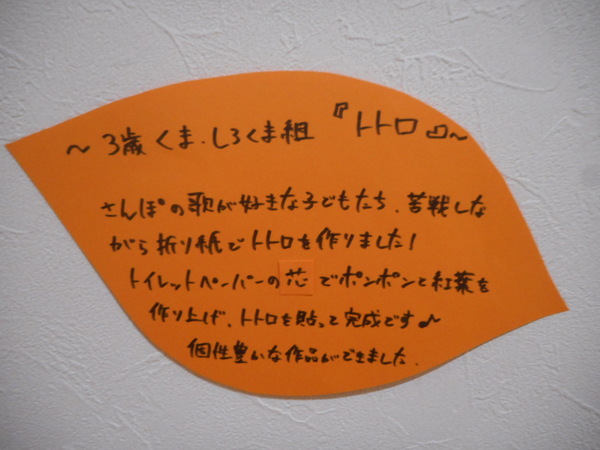 ～3歳 くま、しろくま組 『トトロ』～
さんぽの歌が好きな子どもたち、苦戦しな
がら折り紙でトトロを作りました!
トイレットペーパーの芯でポンポンと紅葉を
作り上げ、トトロを貼って完成です♪
個性豊かな作品ができました.